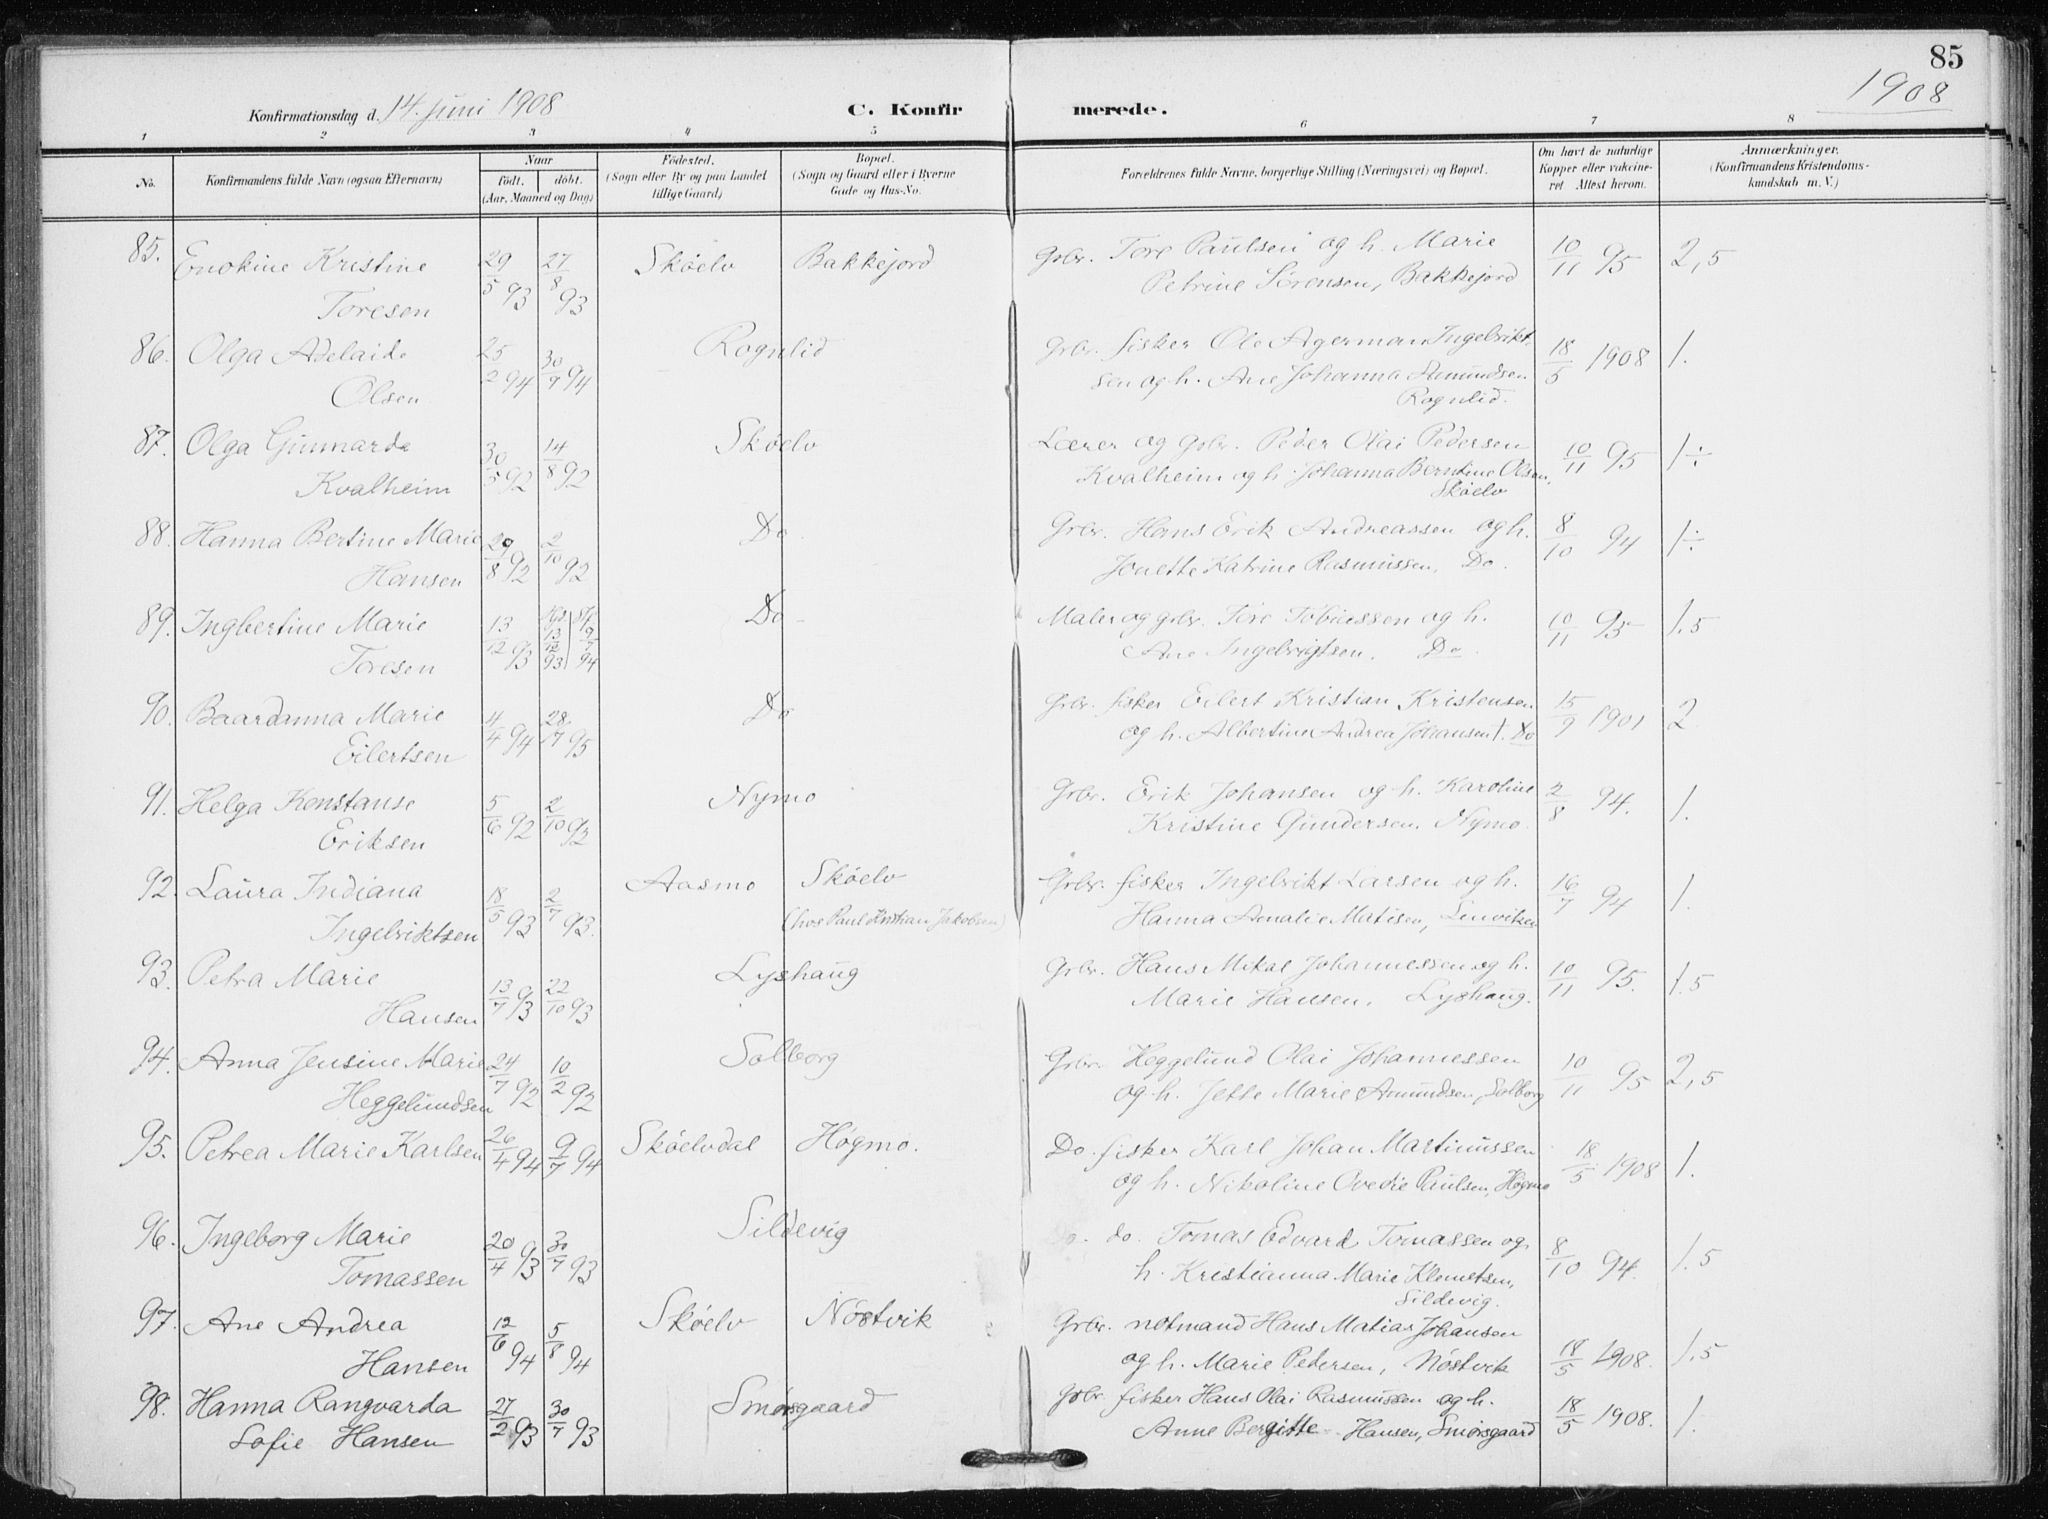 85
1908
Konfirmationsdag d. 14. juni 1908
C. Konfirmerede.
1 2 3 4 5 6 7 8
No.
Konfirmandens fulde Navn (ogsaa Efternavn)
Naar
födt. döbt.
(Aar, Maaned og Dag)
Födested.
(Sogn eller By og paa Landet
tillige Gaard)
Bopæl.
(Sogn og Gaard eller i Byerne
Gade og Hus-No.
Forældrenes fulde Navne, borgerlige Stilling (Næringsvei) og Bopæl.
Om havt de naturlige
Kopper eller vakcine-
ret Attest herom.
Anmærkninger.
(Konfirmandens Kristendoms-
kundskab m. V.)
85. Enokine Kristine 29/5 93 27/8 93 Skóelv Bakkejord Grbr. Tore Paulsen og h. Marie 10/11 95 2,5
Toresen Petrine Sörensen, Bakkejord
86. Olga Adelaide 25/2 94 30/9 94 Rognlid Grbr. fisker Ole Agerman Ingebrikt- 18/5 1908 1.
Olsen sen og h. Ane Johanna Amundsen
Rognlid.
87. Olga Gunnarda 30/5 92 14/8 92 Skóelv Lærer og grbr. Peder Olai Pedersen 10/11 95 1÷
Kvalheim Kvalheim og h. Johanna Berntine Olsen,
Skóelv
88. Hanna Bertine Marie 29/8 92 2/10 92 Do. Grbr. Hans Erik Andreassen og h. 8/10 94 1÷
Hansen Jonette Katrine Rasmussen, Do.
89. Ingbertine Marie 13/12 93 13/12 93 9/7 94 Do Maler og grbr. Tore Tobiassen og h. 10/11 95 1.5
Toresen Ane Ingebrigtsen. Do.
90. Baardanna Marie 4/4 94 95 Do Grbr. fisker Eilert Kristian Kristensen 15/9 1901 2
Eilertsen og h. Albertine Andrea Johansen †. Do
91. Helga Konstanse 5/6 92 2/10 92 Nymo Grbr. Erik Johansen og h. Karoline 2/8 94. 1.
Eriksen Kristine Gundersen, Nymo.
92. Laura Indiana 18/5 93 2/7 93. Aasmo Skóelv Grbr. fisker Ingebrikt Larsen og h. 16/7 94 1.
Ingebriktsen (hos Paul Kristian Jakobsen) Hanna Amalie Matisen, Linviken
93. Petra Marie 13/7 93 22/10 93 Lyshaug Grbr. Hans Mikal Johannessen og h. 10/11 95. 1.5
Hansen Marie Hansen, Lyshaug.
94. Anna Jensine Marie 24/7 92 10/2 92 Solborg Grbr. Heggelund Olai Johannessen 10/11 95 2,5
Heggelundsen og h. Jette Marie Amundsen, Solborg
95. Petrea Marie Karlsen 26/4 94 9/7 94 Skóelvdal Høgmo. Do. fisker Karl Johan Martinussen 18/5 1908 1.
og h. Nikoline Ovedie Paulsen, Høgmo
96. Ingeborg Marie 20/4 93 30/7 93 Sildevig Do. do. Tomas Edvard Tomassen og 8/10 94. 1.5
Tomassen h. Kristianna Marie Klemetsen,
Sildevig.
97. Ane Andrea 12/6 94 5/8 94 Skóelv Nöstvik Grbr. notmand Hans Matias Johansen 18/5 1908. 1.5
Hansen og h. Marie Pedersen, Nöstvik
98. Hanna Rangvarda 27/2 93 30/7 93 Smörsgaard Grbr. fisker Hans Olai Rasmussen og h. 18/5 1908. 1.
Sofie Hansen Anne Bergitte Hansen, Smörsgaard